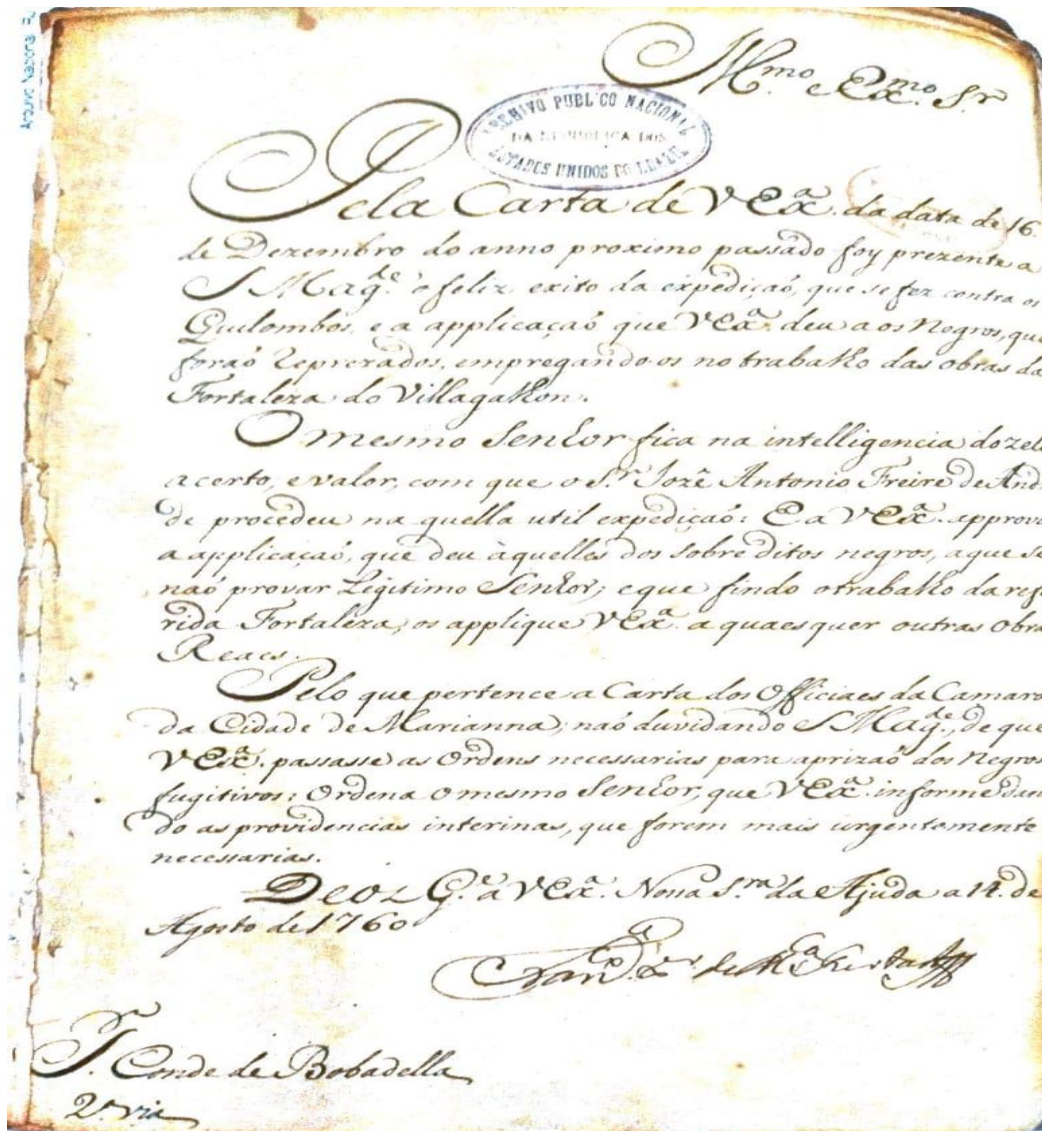 Arquivo Nacional
Illmo e Exmo Sr
ARCHIVO PUBLICO NACIONAL
DA REPUBLICA DOS
ESTADOS UNIDOS DO BRAZIL
Pela Carta de V Exa. da data de 16.
de Dezembro do anno proximo passado foy prezente a
S Magde. o feliz exito da expediçaõ, que se fez contra os
Quilombos, e a applicaçaõ que V Exa. deu aos Negros, que
foraõ reprezados, empregando os no trabalho das obras da
Fortaleza do Villagalhon.
O mesmo Senhor fica na intelligencia do zelo
acerto, e valor, com que o Sr. Jozê Antonio Freire de And
de procedeu na quella util expediçaõ: E a V Exa. approva
a applicaçaõ, que deu àquelles dos sobre ditos negros, a que se
naõ provar Legitimo Senhor; e que findo o trabalho da refe
rida Fortaleza, os applique V Exa. a quaes quer outras Obra
Reaes.
Pelo que pertence a Carta dos Officiaes da Camara
da Cidade de Marianna; naõ duvidando S Magde., de que
V Exa. passasse as Ordens necessarias para a prizaõ dos Negros
fugitivos: Ordena o mesmo Senhor, que V Exa. informe dan
do as providencias interinas, que forem mais urgentemente
necessarias.
Deos Ge. a V Exa. Nossa Sra. da Ajuda a 14. de
Agosto de 1760
Sr. Conde de Bobadella
2a via